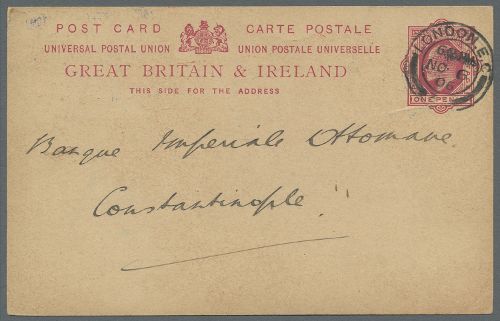 POST CARD CARTE POSTALE
UNIVERSAL POSTAL UNION UNION POSTALE UNIVERSELLE
GREAT BRITAIN & IRELAND
THIS SIDE FOR THE ADDRESS
LONDON. E.C
NO 6
ONE PENNY
Banque Imperiale Ottomane
Constantinople